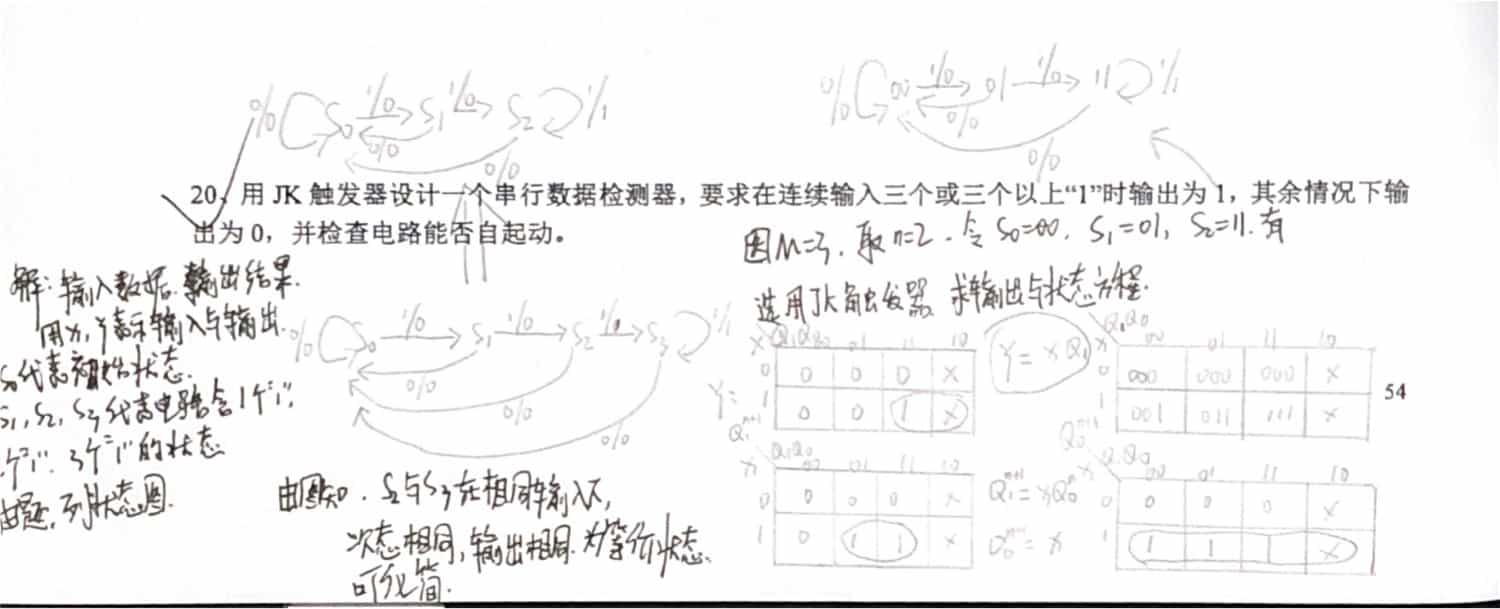 0/0 S0 1/0 S1 1/0 S2 1/1
0/0
0/0
0/0 00 1/0 01 1/0 11 1/1
0/0
0/0
20、用 JK 触发器设计一个串行数据检测器，要求在连续输入三个或三个以上“1”时输出为 1，其余情况下输
出为 0，并检查电路能否自起动。
解：输入数据、输出结果.
用X，Y表示输入与输出.
S0代表初始状态.
S1, S2, S3代表电路含1个“1”,
个“1”、3个“1”的状态
由题，列状态图.
0/0 S0 1/0 S1 1/0 S2 1/0 S3 1/1
0/0
0/0
0/0
由图知，S2与S3在相同输入下,
次态相同，输出相同.为等价状态.
可化简.
因M=3，取n=2.令S0=00, S1=01, S2=11.有
选用JK触发器 求输出与状态方程.
X Q1Q0 00 01 11 10
Y= 0 0 0 0 X
1 0 0 1 X
Y=XQ1
X Q1Q0 00 01 11 10
0 000 000 000 X
1 001 011 111 X
54
Q1^n+1
X Q1Q0 00 01 11 10
0 0 0 0 X
1 0 1 1 X
Q1^n+1=XQ0^n
Q0^n+1=X
Q0^n+1
X Q1Q0 00 01 11 10
0 0 0 0 X
1 1 1 1 X